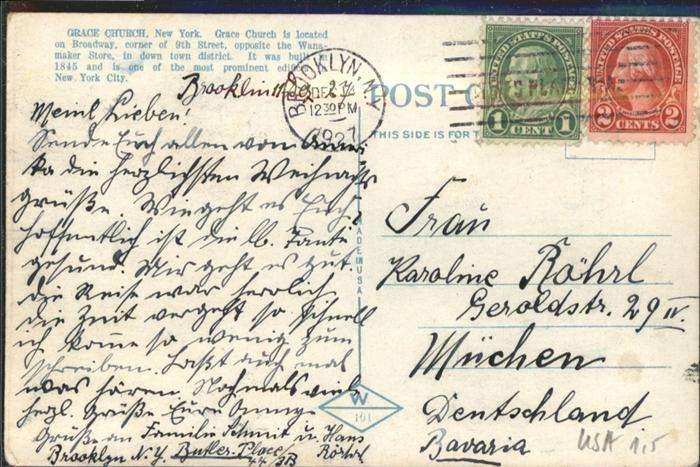 GRACE CHURCH, New York. Grace Church is located
on Broadway, corner of 9th Street, opposite the Wana-
maker Store, in down town district. It was built
1845 and is one of the most prominent
New York City.
BROOKLYN, N.Y.
DEC 2
12 30 PM
1927
POST
THIS SIDE IS FOR
MADE IN USA
UNITED STATES POSTAGE
1 CENT 1
UNITED STATES POSTAGE
2 CENTS 2
Brooklin
Meinl Lieben!
Sende Euch allen von Ameri
ka die herzlichsten Weihnachts
grüße. Wie geht es Euch,
hoffentlich ist die lb. Tante
gesund. Mir geht es gut.
die Reise war herrlich
die Zeit vergeht so schnell
ich komme so wenig zum
schreiben. Laßt auch mal
was hören. Nochmals viele
herzl. Grüße Eure
Grüße an Familie Schmit u. Hans
Brooklyn N.Y. Butler-Place
44 3B
Frau
Karoline Röhrl
Geroldstr. 29 IV.
Müchen
Deutschland
Bavaria
USA 1,5
W
101